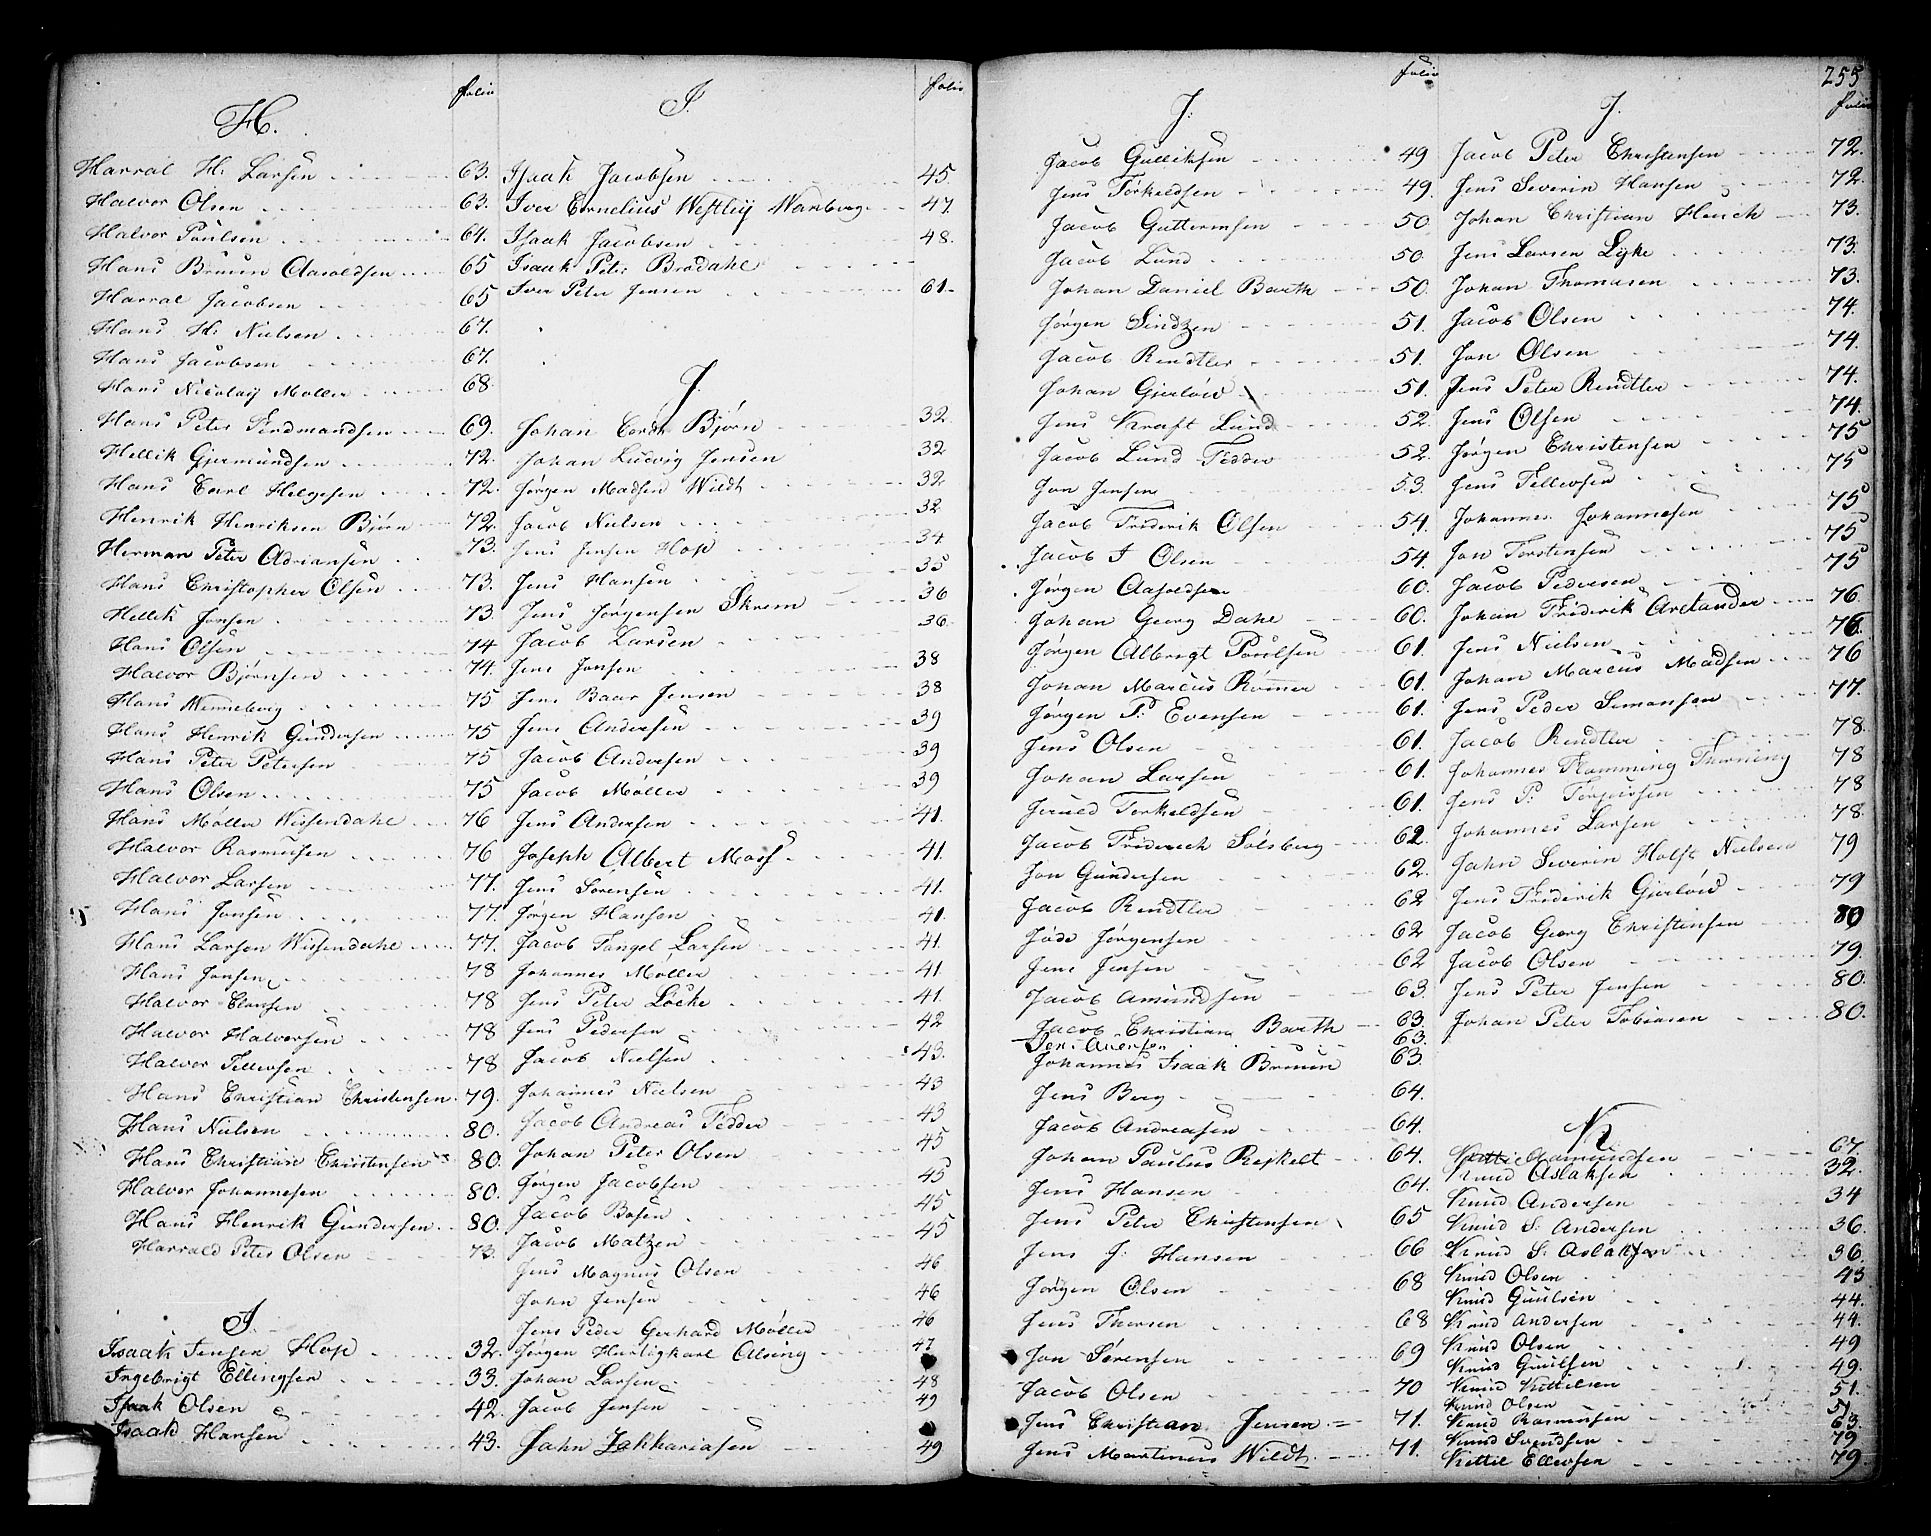 255
folio
H.
Harral H: Larsen 63.
Halvor Olsen 63.
Halvor Poulsen 64.
Hans Bruun Aasoldsen 65
Harral Jacobsen 65
Hans H: Nielsen 67.
Hans Jacobsen 67.
Hans Nicolay Moller 68.
Hans Peter Ferdinandsen 69.
Hellik Gjermundsen 72.
Hans Carl Helgesen 72.
Henrik Henriksen Biørn 72.
Herman Peter Adriansen 73.
Hans Christopher Olsen 73.
Hellik Jonsen 73.
Hans Olsen 74
Halvor Bjørnsen 74.
Hans Wenneberg 75
Hans Henrik Gundersen 75
Hans Peter Petersen 75
Hans Olsen 75
Hans Møller Wissendahl 76
Halvor Rasmusen 76
Halvor Larsen 77.
Hans Jonsen 77.
Hans Larsen Wissendahl 77.
Hans Jonsen 78
Halvor Clausen 78
Halvor Halvorsen 78
Halvor Tellevsen 78
Hans Christian Christensen 79.
Hans Nielsen 80.
Hans Christian Christensen 80.
Halvor Johannesen 80.
Hans Henrik Gundersen 80.
Harrald Peter Olsen 73.
I.
Isaak Jensen Hop 32.
Ingebrigt Ellingsen 33.
Isaak Olsen 42.
Isaak Hansen 43.
folio
I.
Isaak Jacobsen 45.
Iver Cornelius Westley Wanberg 47.
Isaak Jacobsen 48.
Isaak Peter Brodahl
Iver Peter Jensen 61.
J.
Johan Cordt Bjørn 32.
Johan Ludvig Jensen 32
Jørgen Madsen Wildt 32
Jacob Nielsen 32
Jens Jensen Hop 34
Jens Hansen 35
Jens Jørgensen Skrem 36
Jacob Larsen 36.
Jens Jonsen 38
Jens Baar Jensen 38
Jens Andersen 39
Jacob Andersen 39
Jacob Møller 39
Jens Andersen 41.
Joseph Albert Moss 41.
Jens Sørensen 41.
Jørgen Hansen 41.
Jacob Tangel Larsen 41
Johannes Møller 41.
Jens Peter Løcke 41.
Jens Pedersen 42
Jacob Nielsen 43.
Johannes Nielsen 43
Jacob Andreas Fedder 43
Johan Peter Olsen 45
Jørgen Jacobsen 45
Jacob Bosen 45
Jacob Matzen 45
Jens Magnus Olsen 46
John Jensen 46
Jens Peder Gerhard Møller 46
Jørgen Hartigkarl Alsing 47
Johan Larsen 48
Jacob Jensen 49
John Zakkariasen 49
folio
J:
Jacob Gulliksen 49
Jens Torkeldsen 49.
Jacob Guttormsen 50
Jacob Lund 50.
Johan Daniel Barth 50.
Jørgen Sindzen 51.
Jacob Rendtler 51.
Johan Gierløw 51.
Jens Kraft Lund 52.
Jacob Lund Fedder 52.
Jon Jensen 53.
Jacob Friderik Olsen 54.
Jacob J Olsen 54.
Jørgen Aasoldsen 60.
Johan Georg Dahl 60.
Jørgen Albregt Poulsen 61.
Johan Marcus Rømer 61.
Jørgen P: Evensen 61.
Jens Olsen 61.
Johan Larsen 61.
Jeruld Torkeldsen 61.
Jacob Friderich Solsberg 62.
Jon Gundersen 62.
Jacob Rendtler 62
Jøde Jørgensen 62
Jens Jensen 62
Jacob Amundsen 63.
Jacob Christian Barth 63.
63.
Johannes Isaak Bruun 63.
Jens Berg 64.
Jacob Andreasen 64.
Johan Paulus Rejkelt 64.
Jens Hansen 64.
Jens Peter Christensen 65
Jens J: Hansen 66
Jørgen Olsen 68
Jens Thorsen 68
Jon Sørensen 69
Jacob Olsen 70
Jens Christian Jensen 71.
Jens Martinus Wildt 71.
folio
J.
Jacob Peter Christensen 72.
Jens Severin Hansen 72
Johan Christian Husch 73.
Jens Larsen Lyke 73.
Johan Thomasen 73.
Jacob Olsen 74.
Jon Olsen 74.
Jens Peter Rendtler 74.
Jens Olsen 74.
Jørgen Christensen 75
Jens Tellevsen 75
Johannes Johannesen 75
Jon Torstensen 75
Jacob Pedersen 75
Johan Friderik Arctander 76.
Jens Nielsen 76.
Johan Marcus Madsen 76
Jens Peder Simonsen 77.
Jacob Rendtler 78.
Johannes Flamming Thorning 78
Jens P: Torgersen 78
Johannes Larsen 78.
John Severin Holst Nielsen 79
Jens Friderik Gierløw 79
Jacob Georg Christensen 80
Jacob Olsen 79.
Jens Peter Jensen 80.
Johan Peter Tobiasen 80.
K
Kittil Aamundsen 67.
Knud Aslaksen 32.
Knud Andersen 34
Knud S: Andersen 36.
Knud S: Aslaksen 36.
Knud Olsen 43
Knud Guulsen 44.
Knud Andersen 44.
Knud Olsen 49
Knud Guulsen 49.
Knud Kittilsen 51.
Knud Olsen 51
Knud Rasmusen 63.
Knud Svendsen 79
Kittil Ellevsen 79.